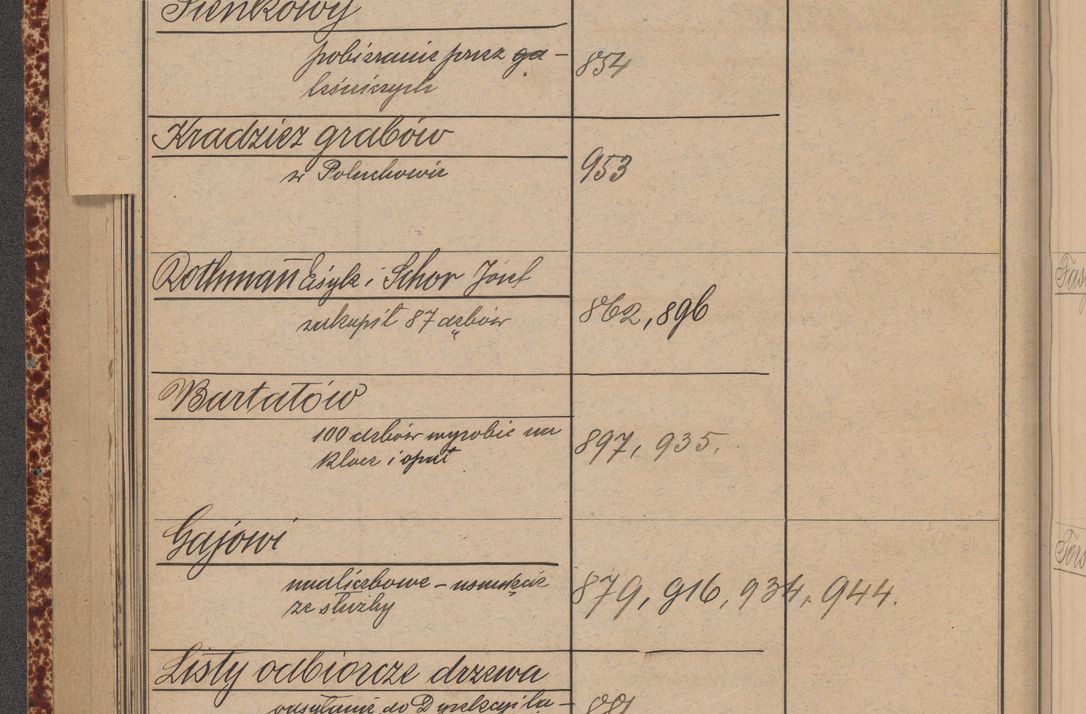 Sienkowy
pobieranie przez ga-
leśniczych
854
Kradzież grabów
w Poluchowie
953
Rothmann Eisyk i Schor Józef
zakupił 87 dębów
862, 896
Bartatów
100 dębów wyrobić na
kloce i opał
897, 935.
Gajowi
nadliczbowe - usunięcie
ze służby
879, 916, 934, 944.
Listy odbiorcze drzewa
wysyłanie do Dyrekcyi La-
881